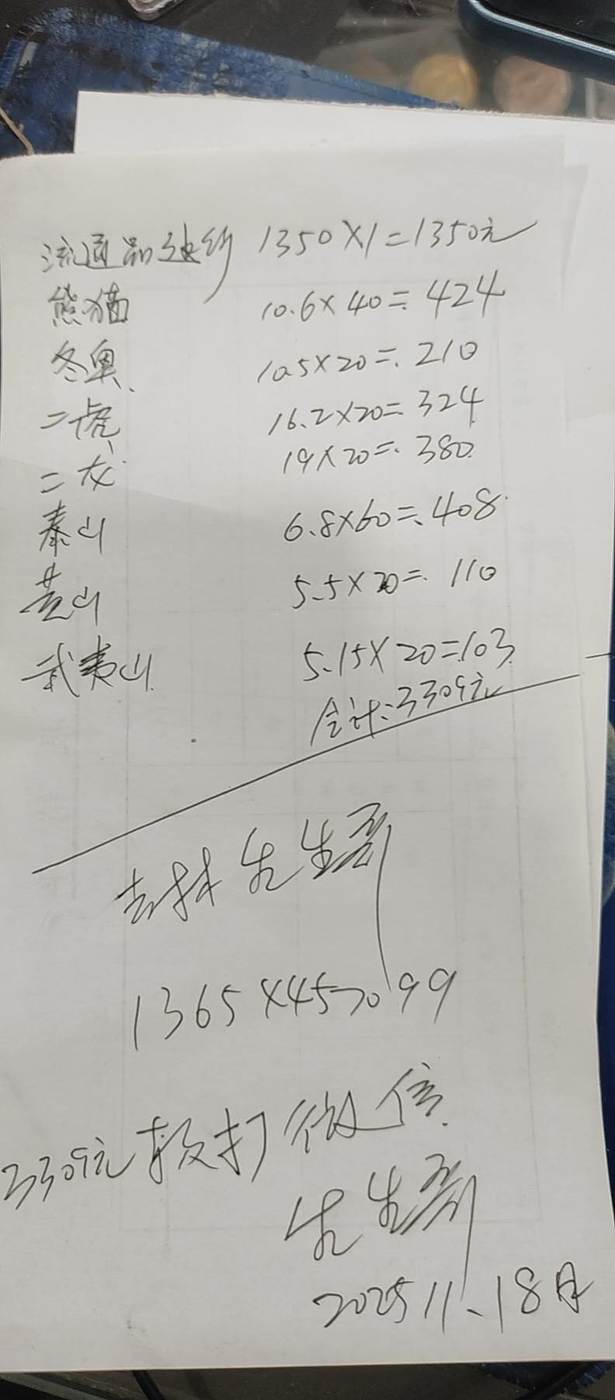 流通品 1350×1=1350元
熊猫 10.6×40=424
冬奥 10.5×20=210
二虎 16.2×20=324
二龙 19×20=380
泰山 6.8×60=408
黄山 5.5×20=110
武夷山 5.15×20=103
合计:3309元
吉林 生生
1365×457099
3309元 打微信
生生
2025 11、18日